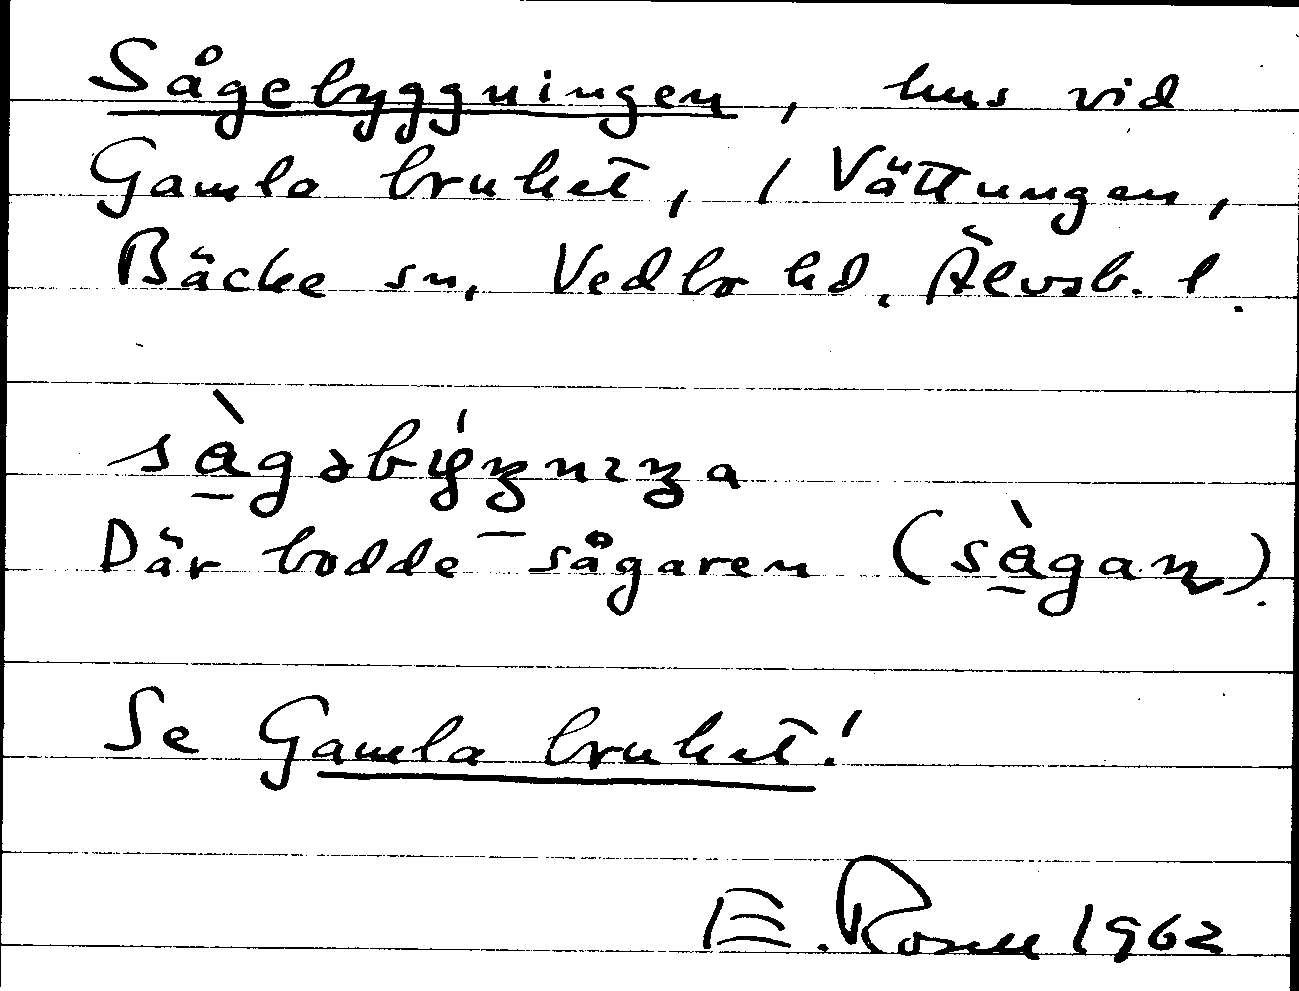 Sågebyggningen, hus vid
Gamla bruket, 1 Vättungen,
Bäcke sn, Vedbo hd, Älvsb. l.
Där bodde sågaren
Se Gamla bruket!
E. Rosell 1962